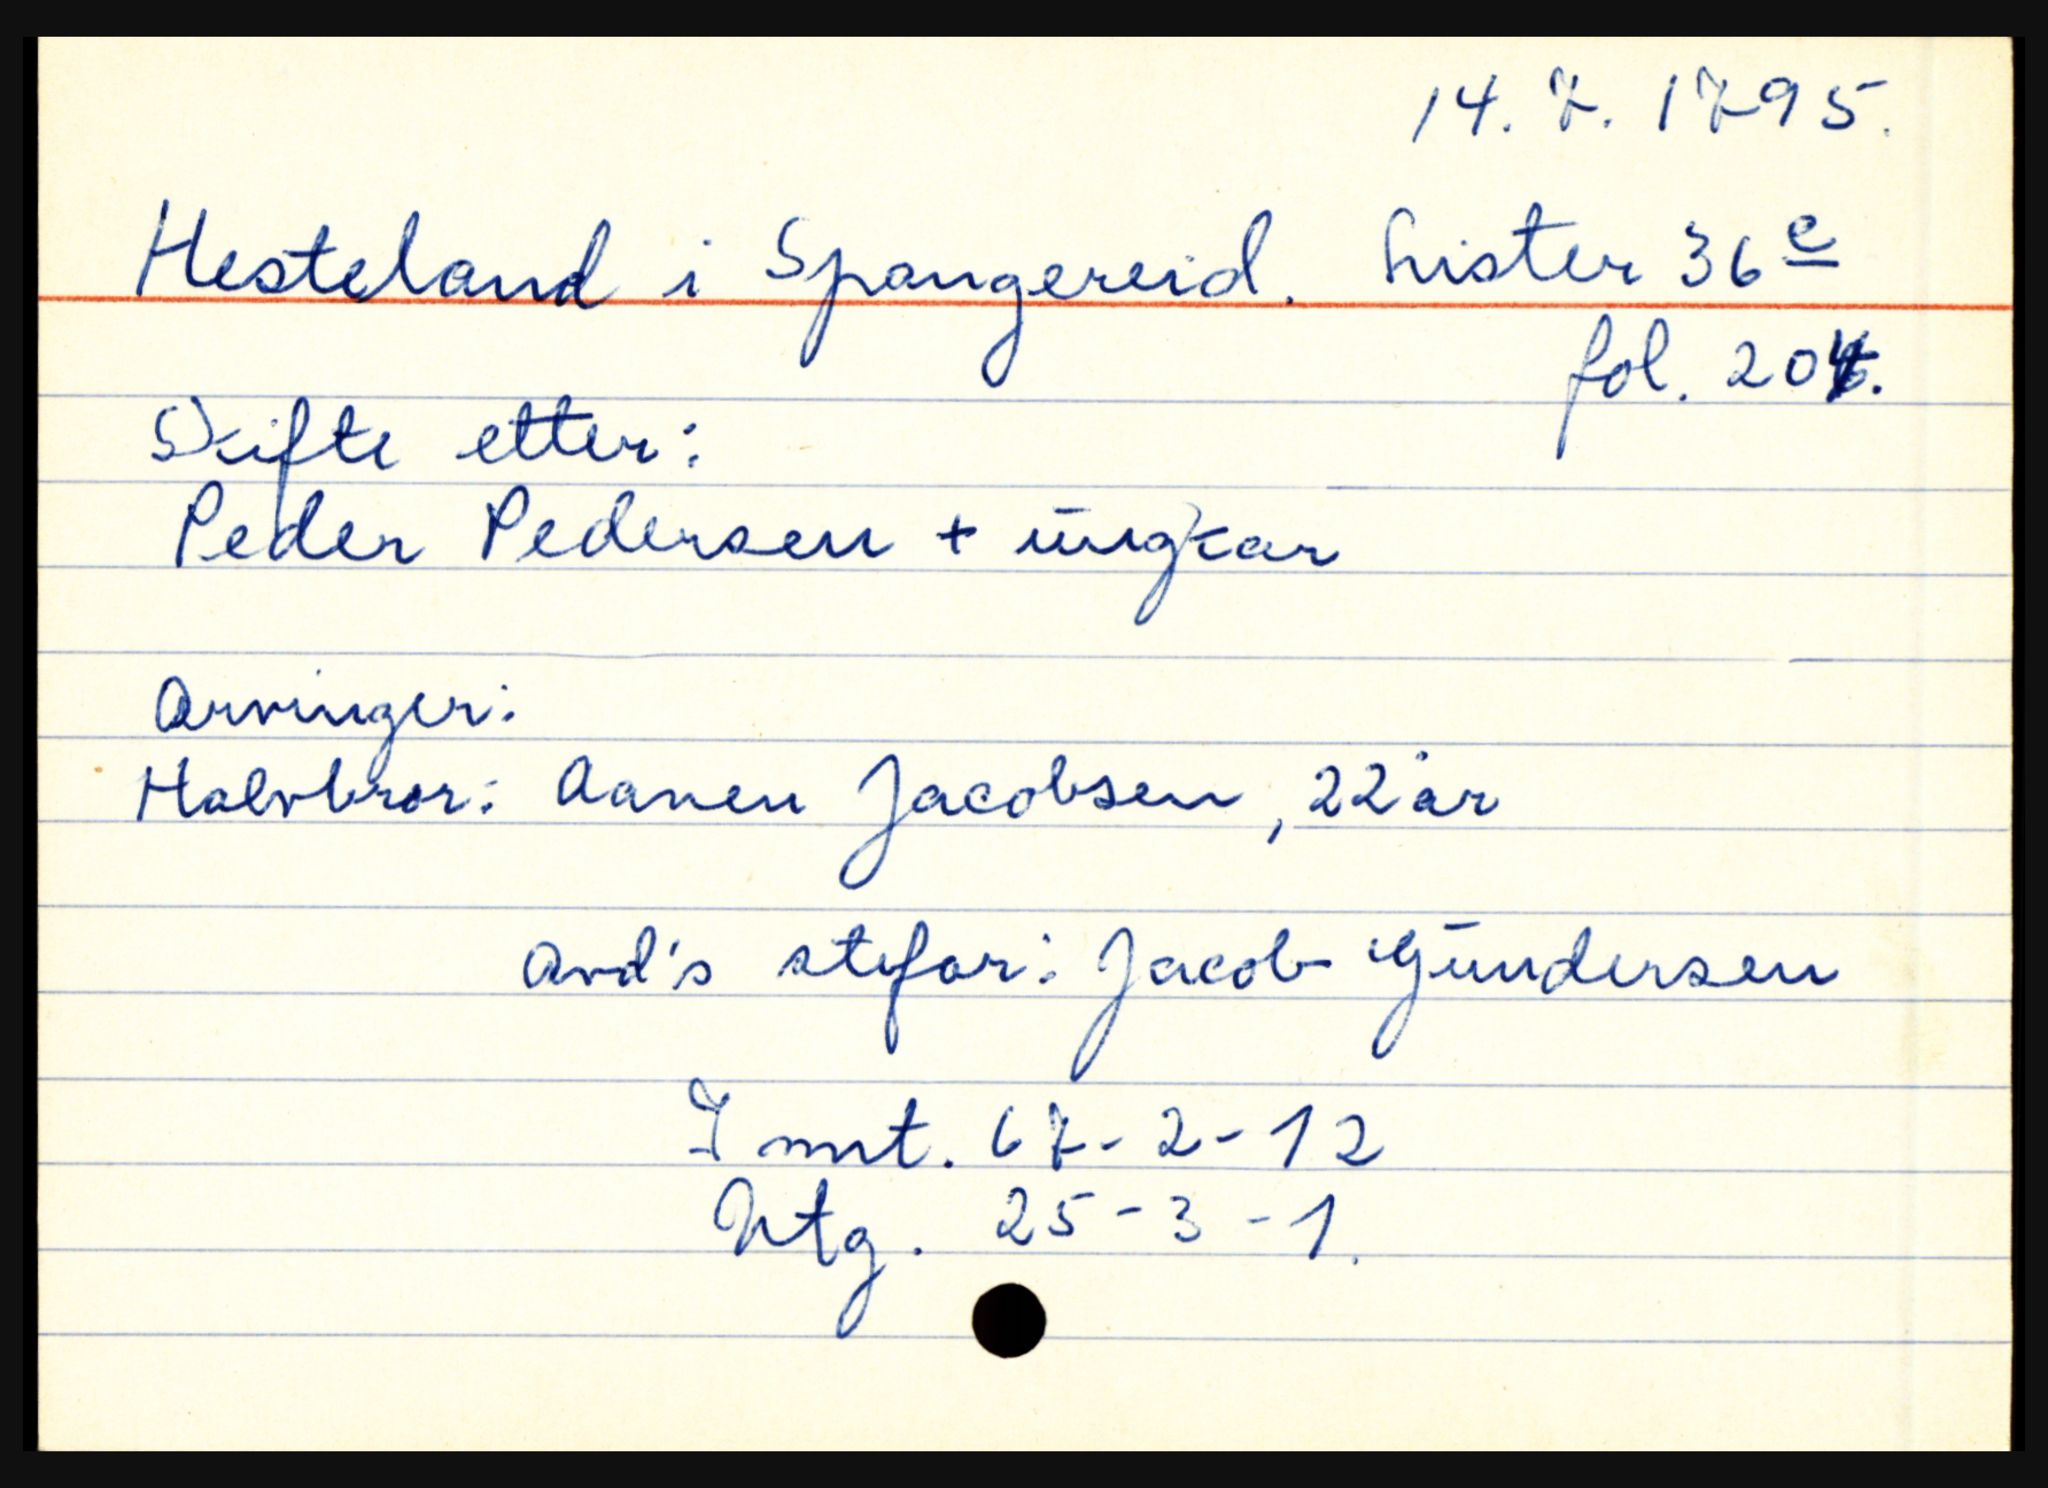 14. 7. 1795.
Hesteland i Spangereid. Lister 36 e
fol. 204.
Skifte etter:
Peder Pedersen + ungkar
Arvinger:
Halvbror: Aanen Jacobsen, 22 år
Avd's stefar: Jacob Gundersen
Innt. 67-2-12
Utg. 25-3-1.